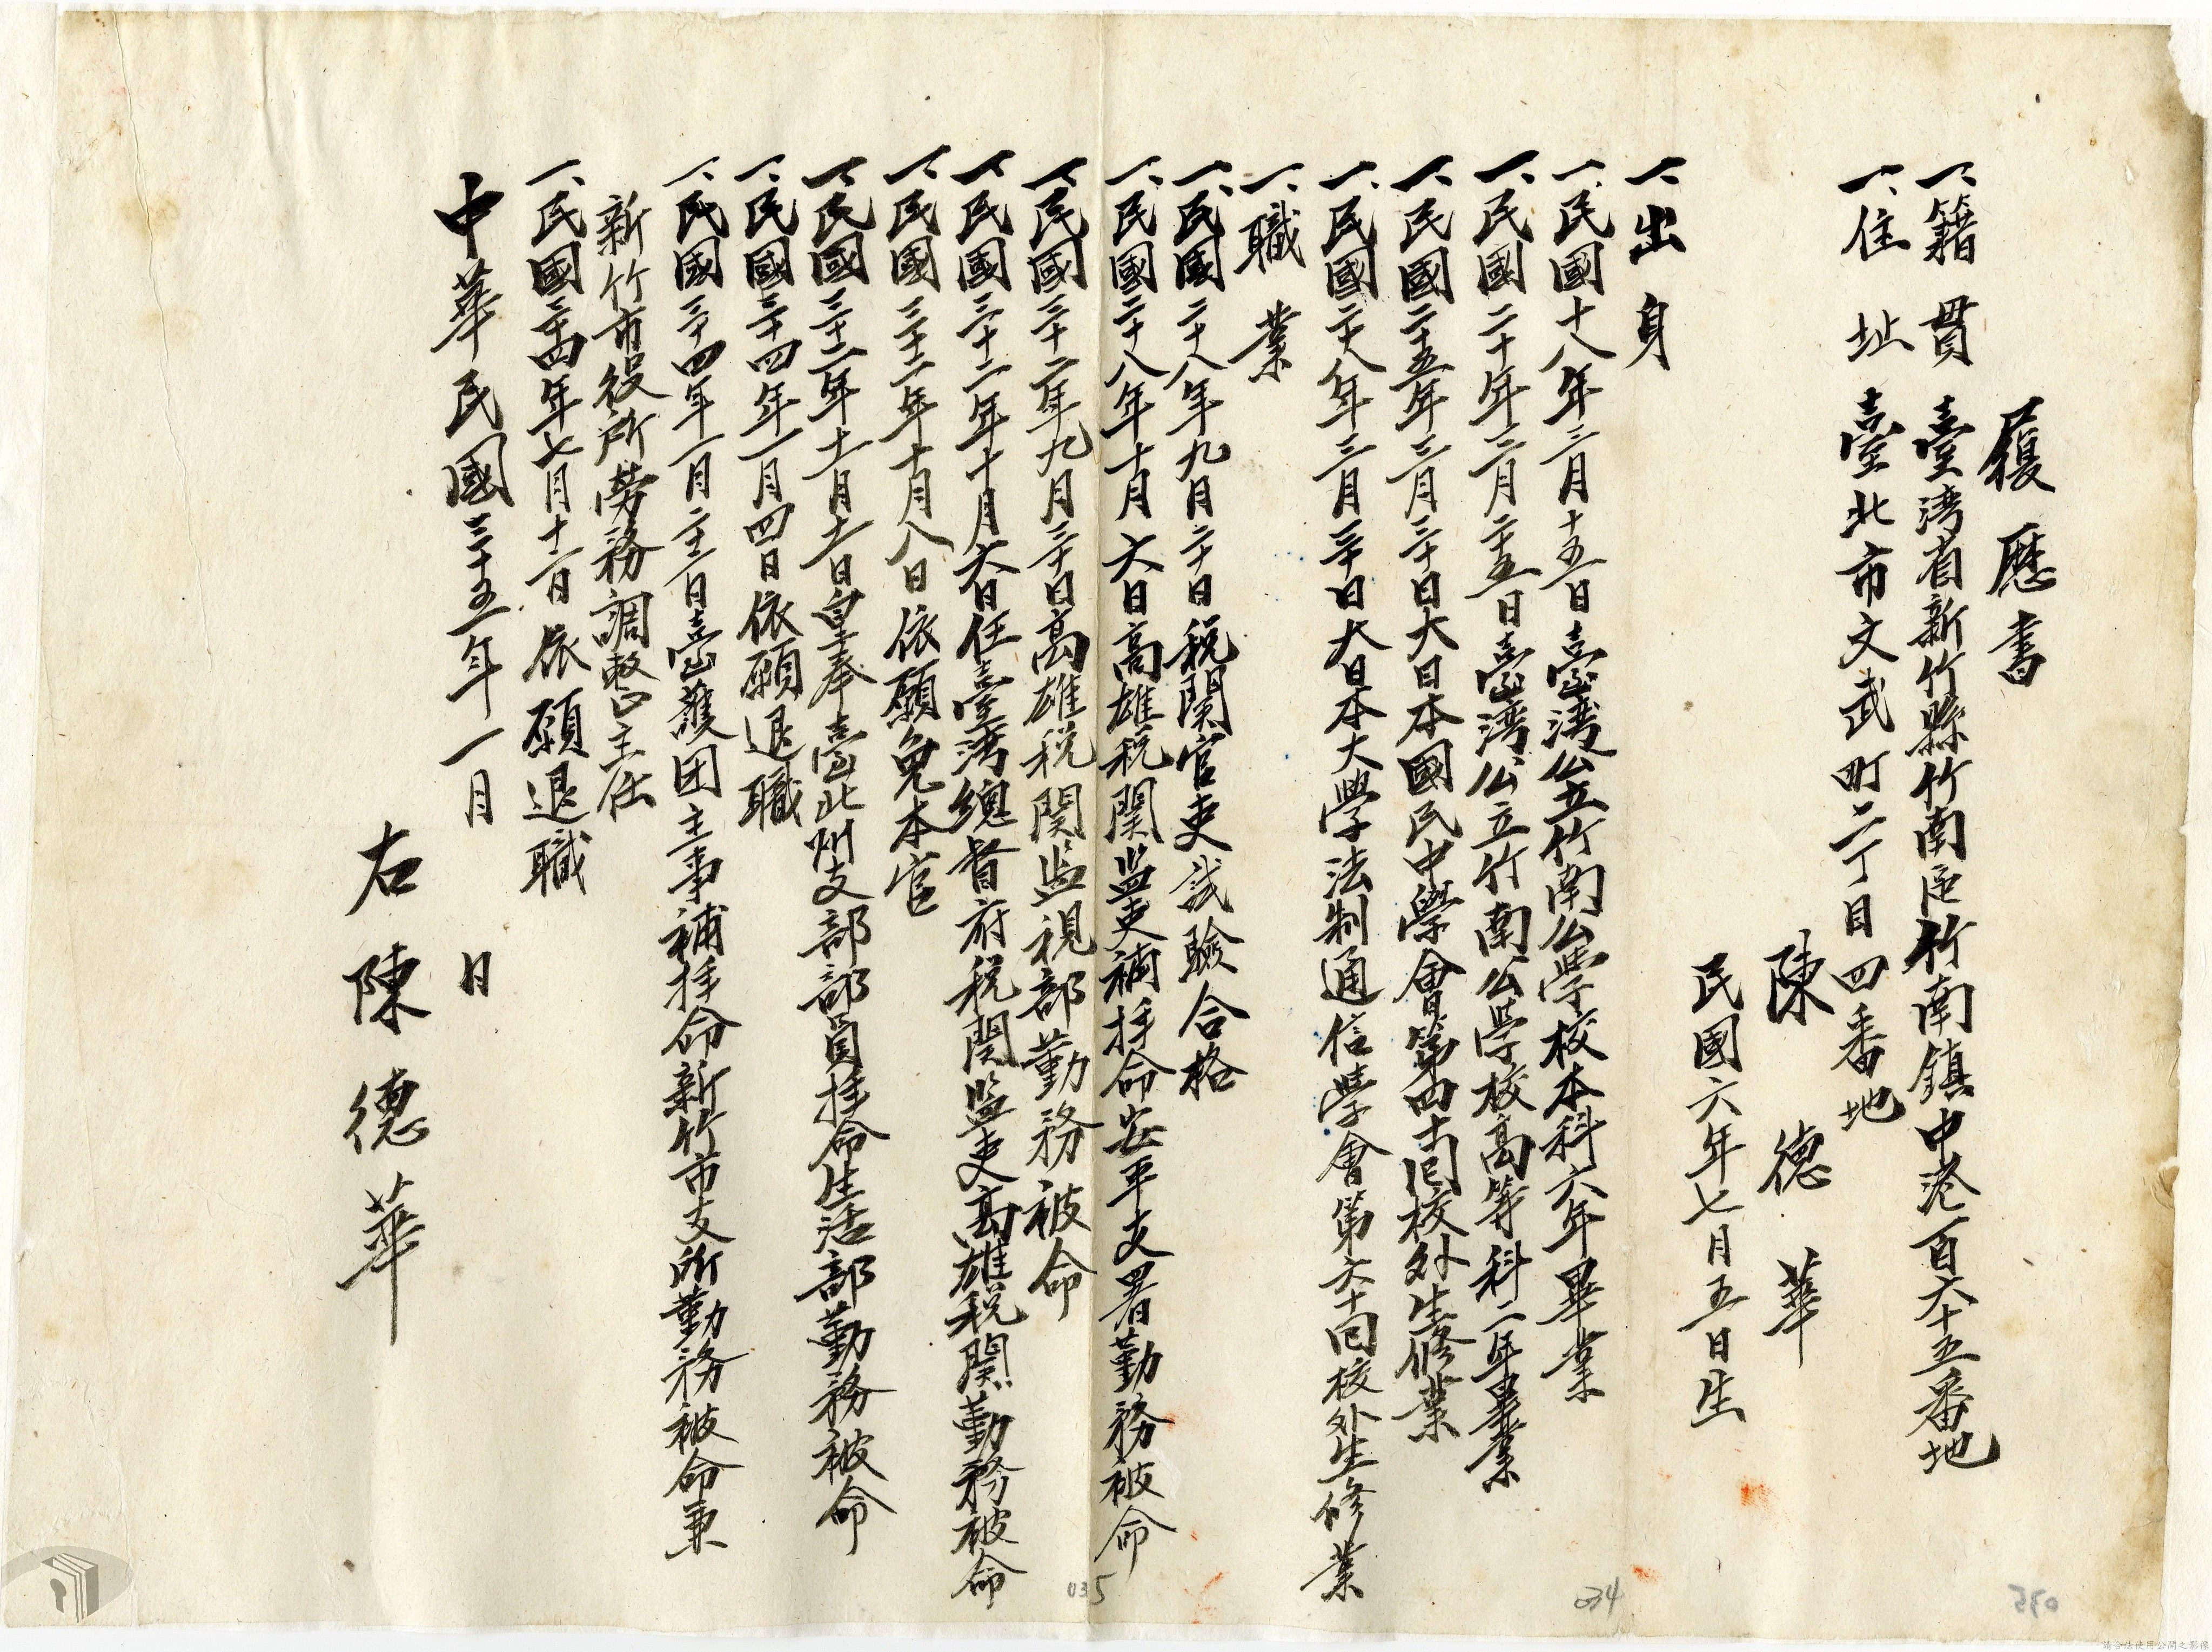 履歷書
一、籍貫 臺灣省新竹縣竹南區竹南鎮中港一百六十五番地
一、住址 臺北市文武町二丁目四番地
陳德華
民國六年七月五日生
一、出身
一、民國十八年三月十五日臺灣公立竹南公學校本科六年畢業
一、民國二十年三月二十五日臺灣公立竹南公學校高等科二年畢業
一、民國二十五年三月三十日大日本國民中學會第四十回校外生修業
一、民國二十八年三月三十日大日本大學法制通信學會第六十回校外生修業
一、職業
一、民國二十八年九月二十日稅関官吏試驗合格
一、民國二十八年十月六日高雄稅関監吏補拝命安平支署勤務被命
一、民國三十二年九月三十日高雄稅関監視部勤務被命
一、民國三十二年十月六日任臺灣總督府稅関監吏高雄稅関勤務被命
一、民國三十二年十月八日依願免本官
一、民國三十二年十一月十一日皇奉臺北州支部部員拝命生活部勤務被命
一、民國三十四年一月四日依願退職
一、民國三十四年一月二十二日臺護团主事補拝命新竹市支所勤務被命兼
新竹市役所勞務調整主任
一、民國三十四年七月十二日依願退職
中華民國三十五年一月 日
右 陳德華
035
034